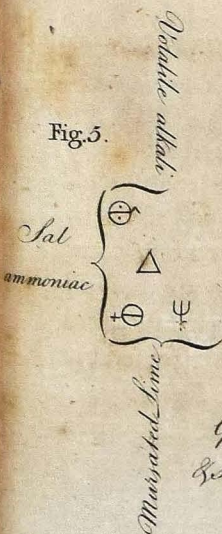 Volatile alkali
Fig.5.
Sal
ammoniac
Muriated Lime